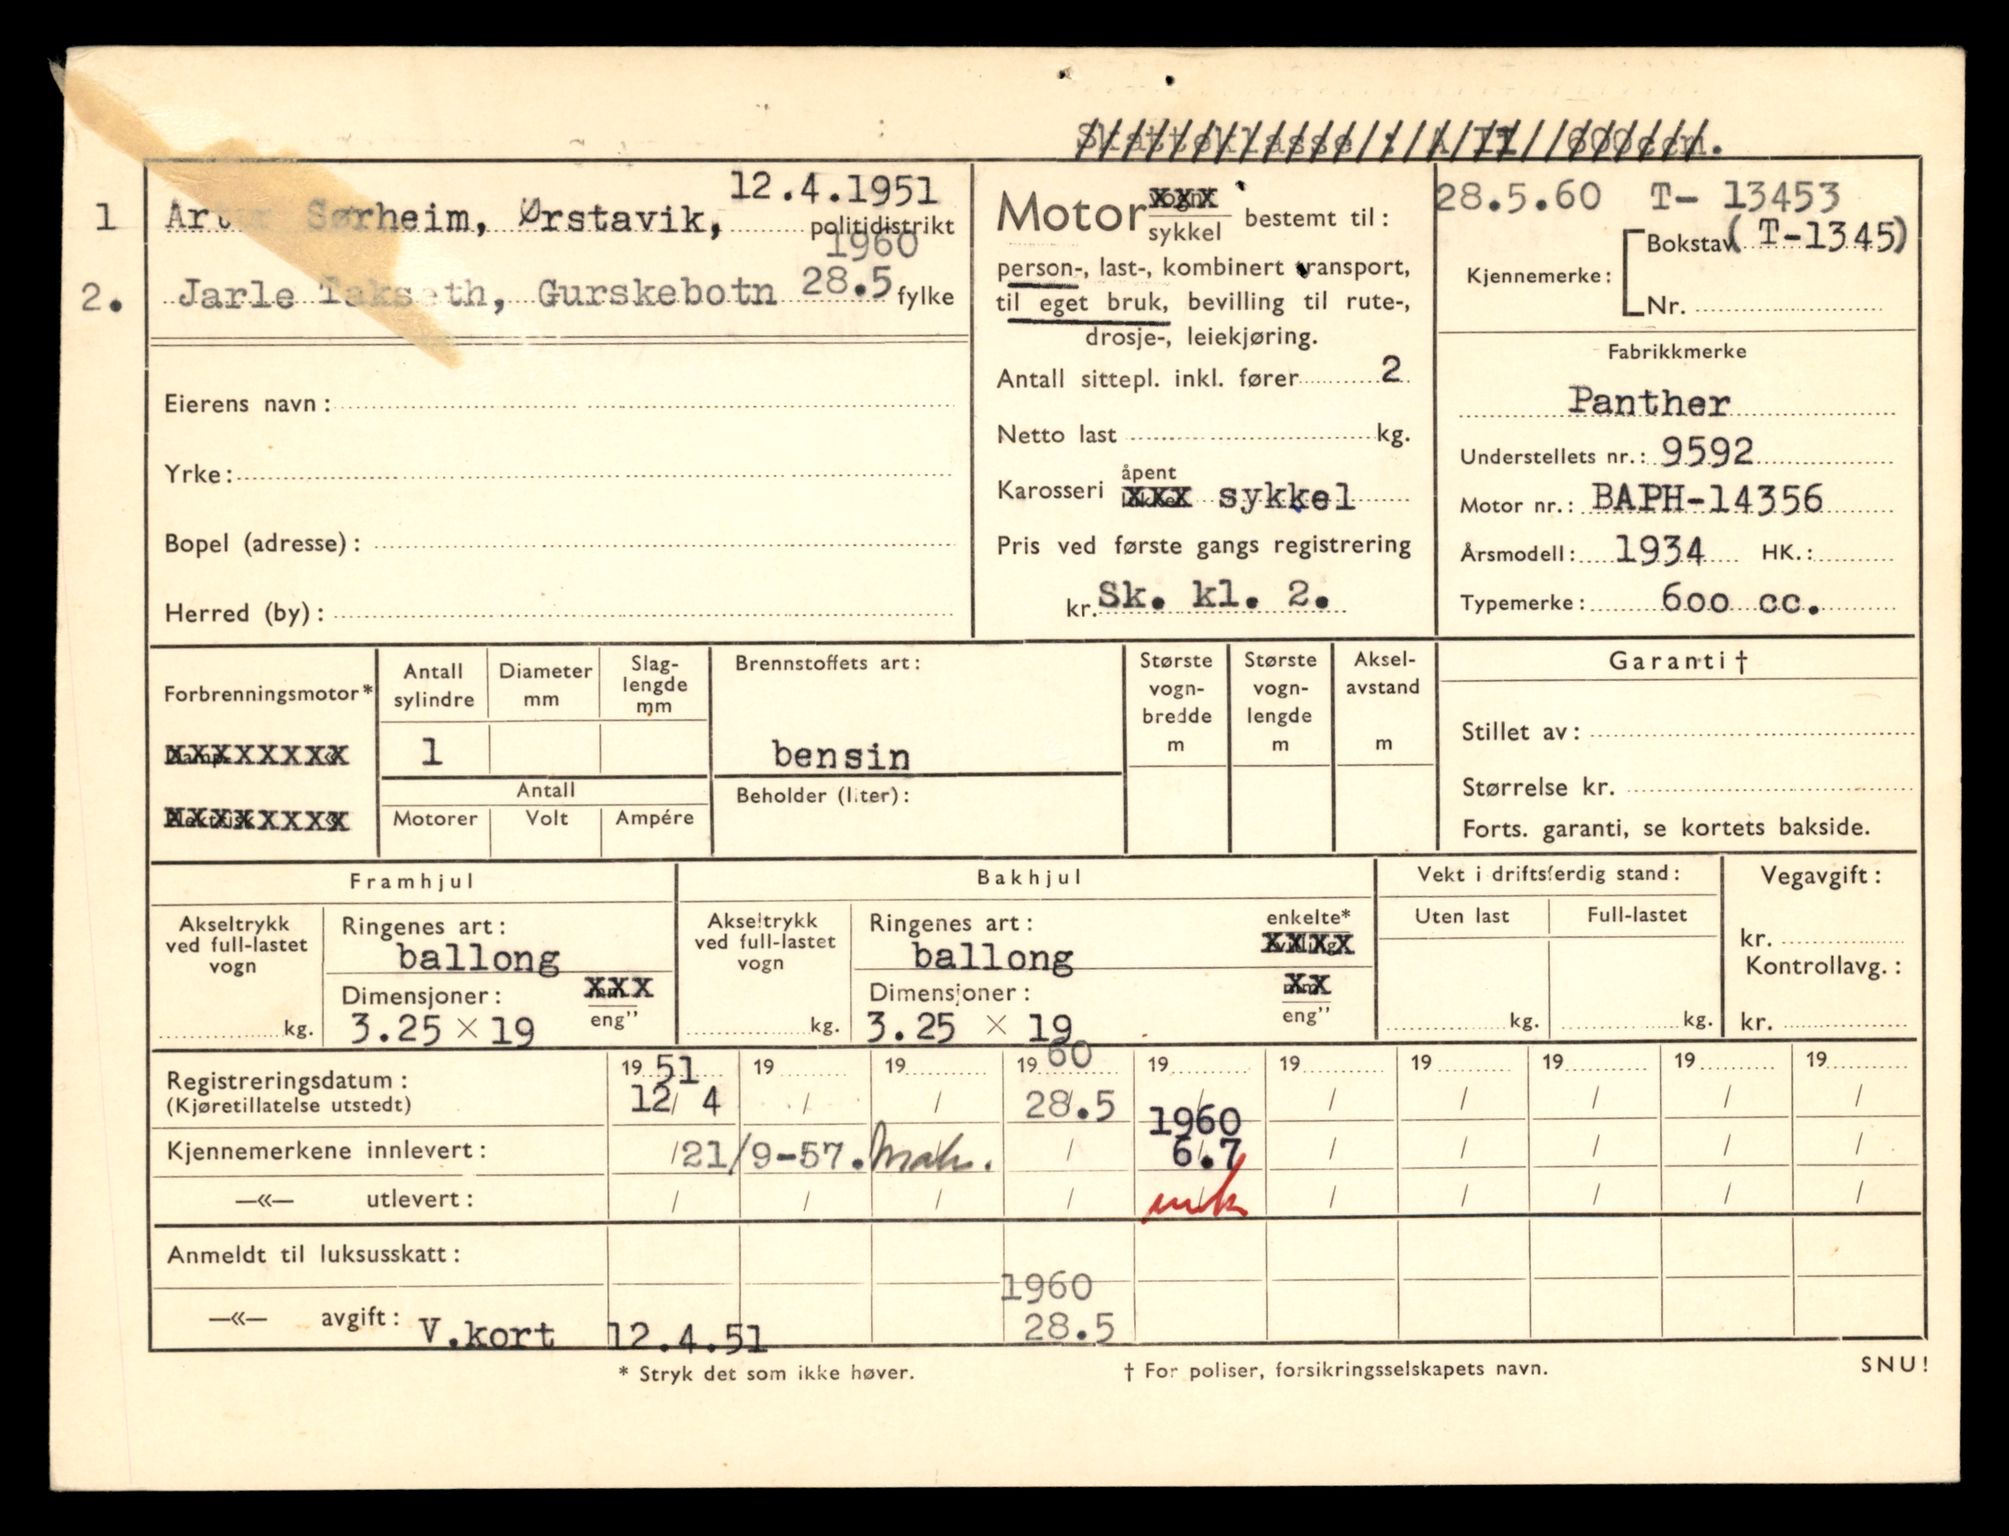 Skatteklasse : A II 600ccm.
12.4.1951
1 Artur Sørheim, Ørstavik, politidistrikt
1960
2. Jarle Takseth, Gurskebotn 28.5 fylke
Eierens navn:
Yrke:
Bopel (adresse):
Herred (by):
Motor vogn sykkel bestemt til:
person-, last-, kombinert transport,
til eget bruk, bevilling til rute-,
drosje-, leiekjøring.
Antall sittepl. inkl. fører 2
Netto last kg.
Karosseri åpent lukket sykkel
Pris ved første gangs registrering
kr. Sk. kl. 2.
28.5.60 T- 13453
Bokstav (T-1345)
Kjennemerke:
Nr.
Fabrikkmerke
Panther
Understellets nr.: 9592
Motor nr.: BAPH-14356
Årsmodell: 1934 HK.:
Typemerke: 600 cc.
Forbrenningsmotor*
Damp- «
Elektrisk «
Antall sylindre
Diameter mm
Slag- lengde mm
1
Antall
Motorer Volt Ampére
Brennstoffets art:
bensin
Beholder (liter):
Største vogn- bredde m
Største vogn- lengde m
Aksel- avstand m
Garanti †
Stillet av:
Størrelse kr.
Forts. garanti, se kortets bakside.
Framhjul
Akseltrykk ved full-lastet vogn
kg.
Ringenes art:
ballong
Dimensjoner: mm eng"
3.25 × 19
Bakhjul
Akseltrykk ved full-lastet vogn
kg.
Ringenes art: enkelte* tvilling
ballong
Dimensjoner: mm eng"
3.25 × 19
Vekt i driftsferdig stand:
Uten last Full-lastet
kg. kg.
Vegavgift:
kr.
Kontrollavg.:
kr.
Registreringsdatum: 19 51 19 19 19 60 19 19 19 19 19 19
(Kjøretillatelse utstedt) 12/ 4 / / 28.5 / / / / / /
1960
Kjennemerkene innlevert: / 21/9-57. / 6.7 / / / / /
—«— utlevert: / / / / / / / / /
Anmeldt til luksusskatt:
1960
—«— avgift: V.kort 12.4.51 28.5
* Stryk det som ikke høver.
† For poliser, forsikringsselskapets navn.
SNU!